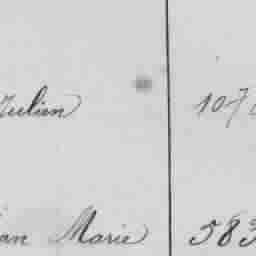 Julien 107
an Marie 583